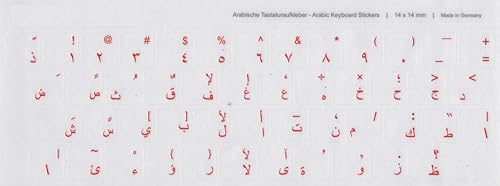 Arabische Tastaturaufkleber - Arabic Keyboard Stickers | 14 x 14 mm | Made in Germany
ّ ! @ # $ % ^ & * ( ) — +
ذ ١ ٢ ٣ ٤ ٥ ٦ ٧ ٨ ٩ ٠ _ =
َ ً ُ ٌ لإ إ ‘ ÷ × ؛ < >
ض ص ث ق ف غ ع ه خ ح ج د
] [ لأ أ ـ ، / : " |
ش س ي ب ل ا ت ن م ك ط \
| ~ ْ } { لآ آ ’ , . ؟
\ ئ ء ؤ ر لا ى ة و ز ظ